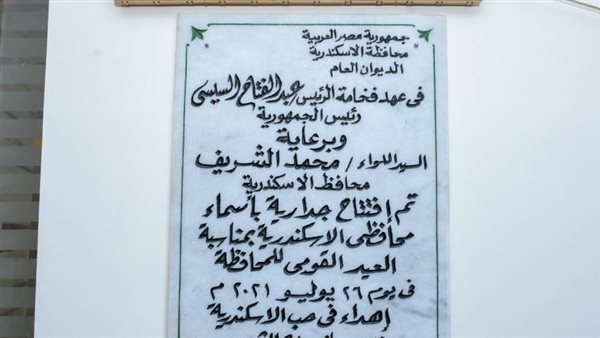 جمهورية مصر العربية
محافظة الاسكندرية
الديوان العام
فى عهد فخامة الرئيس عبدالفتاح السيسى
رئيس الجمهورية
وبرعاية
السيد اللواء / محمد الشريف
محافظ الاسكندرية
تم إفتتاح جدارية بأسماء
محافظى الاسكندرية بمناسبة
العيد القومى للمحافظة
فى يوم ٢٦ يوليو ٢٠٢١ م
إهداء فى حب الاسكندرية